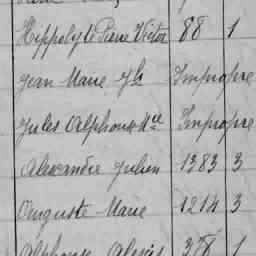 Hippolyte Pierre Victor 88 1
Jean Marie Impropre
Jules Alphonse Impropre
Alexandre Julien 1383 3
Auguste Marie 1214 3
Alphonse Alexis 378 1